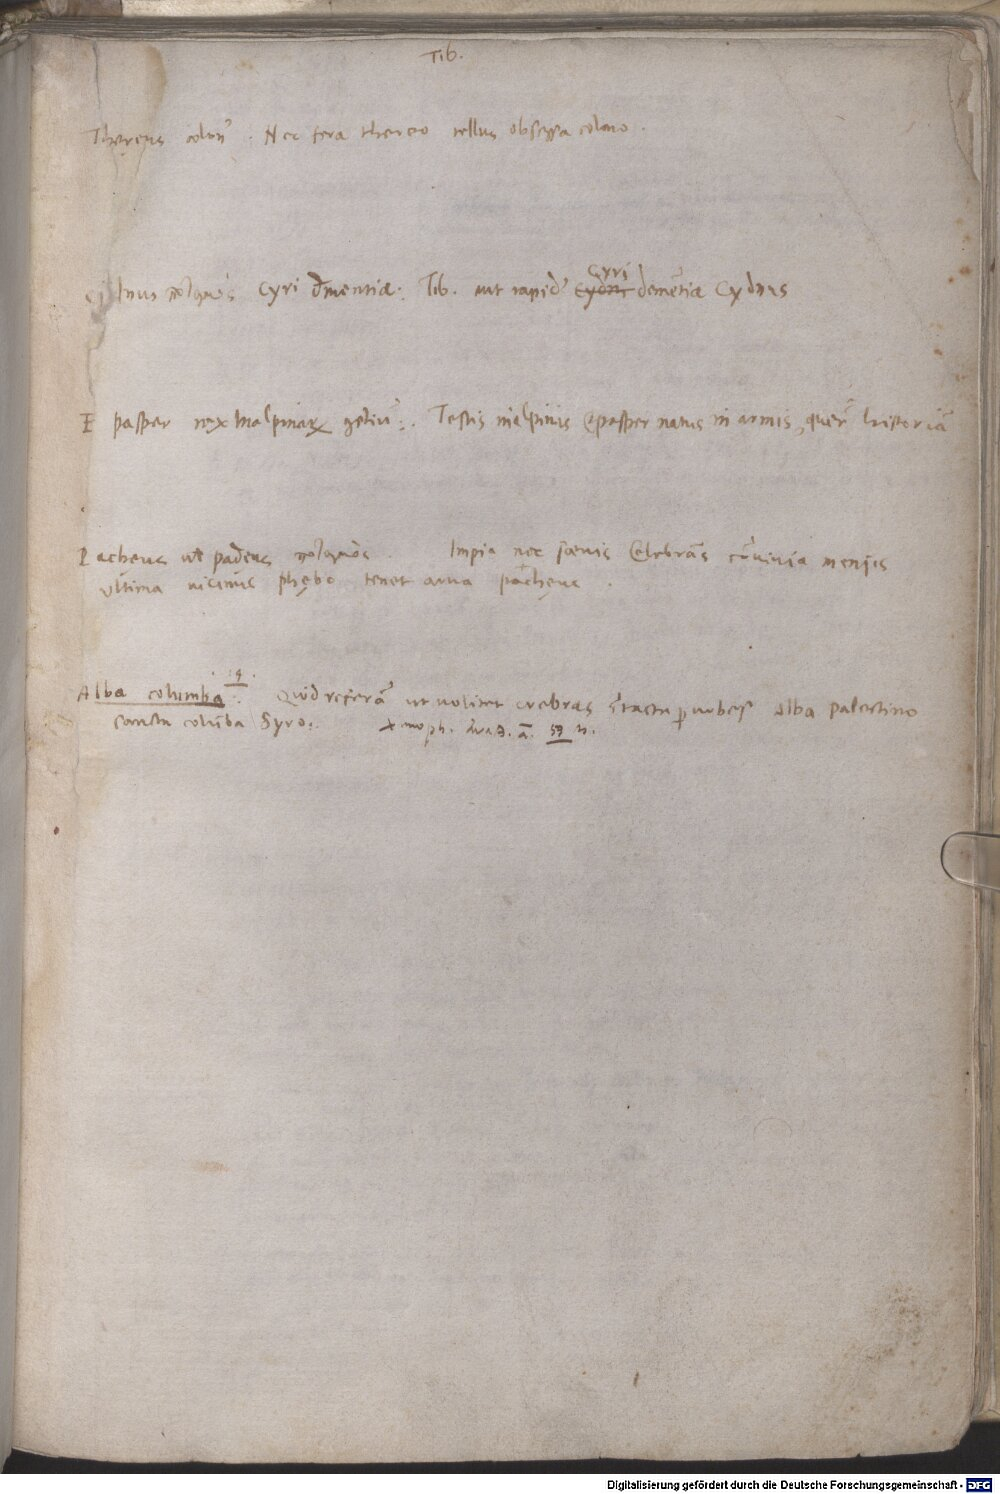 Tib.
Thereus colon⁹. Nec fera thereo tellus obsessa colono.
Cyri dēmentiæ. Tib. aut rapid⁹ Cyri demētia Cydnus
pasper rex Testis pasper natus in armis, quer̄ historiā
Pacheus ut padeus ποταμὸς. Impia nec sævis celebrās cōvivia mensis
ultima vicinus phębo tenet arva pacheus.
Alba columba 19. Quid referā ut volitet crebras ītacta per urbes Alba palestino
sancta colūba Syro. Xenoph. 59
Digitalisierung gefördert durch die Deutsche Forschungsgemeinschaft - DFG